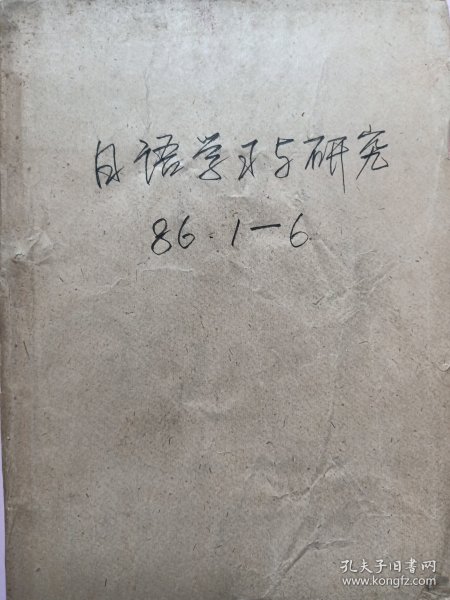 日语学习与研究
86.1—6
孔夫子旧书网
www.kongfz.com